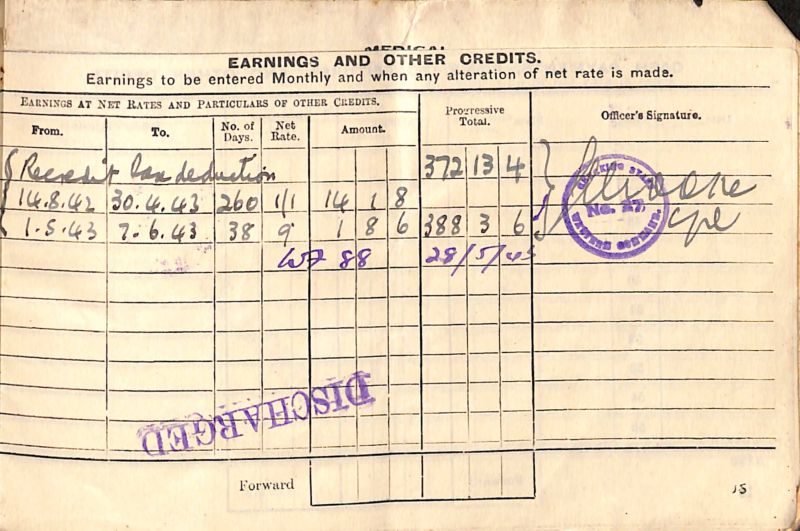 MEDICAL
EARNINGS AND OTHER CREDITS.
Earnings to be entered Monthly and when any alteration of net rate is made.
EARNINGS AT NET RATES AND PARTICULARS OF OTHER CREDITS.
Progressive Total.
Officer's Signature.
From. To. No. of Days. Net Rate. Amount.
Recredit tax deduction 372 13 4
14.8.42 30.4.43 260 1/1 14 1 8
1.5.43 7.6.43 38 9 1 8 6 388 3 6
Cpl
No. 27.
WESTERN COMMAND.
88 28/5/45
DISCHARGED
Forward
15